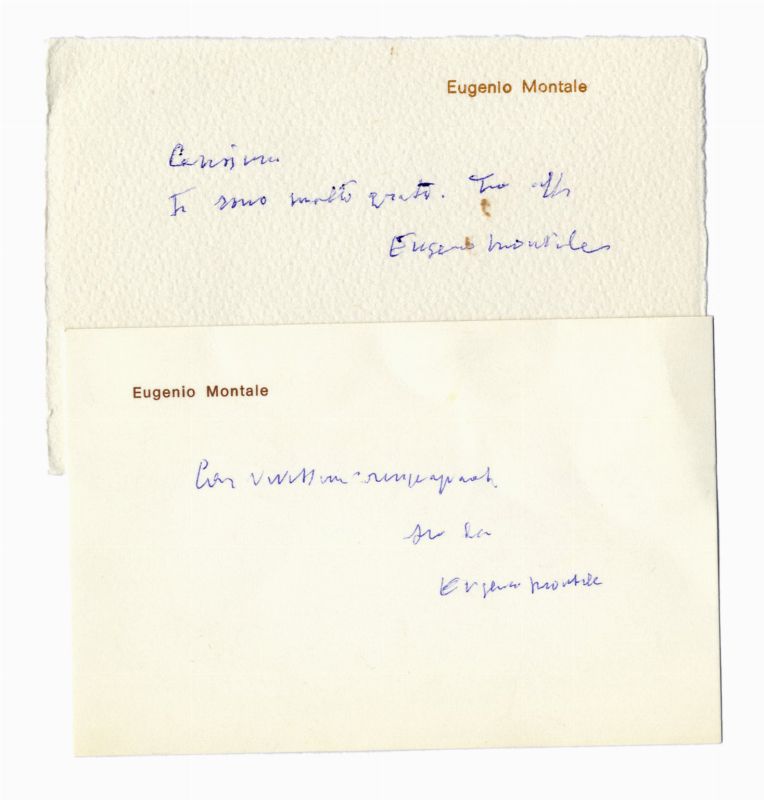 Eugenio Montale
Carissimo
Ti sono molto grato. Tuo aff
Eugenio Montale
Eugenio Montale
Con vivissimi
Eugenio Montale